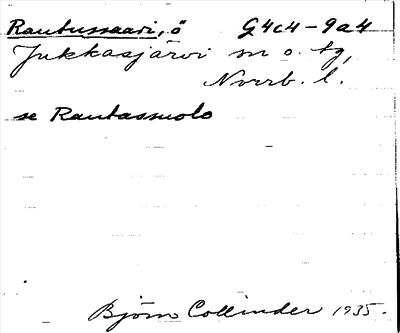 Rautussaari, ö G4c4-9a4
Jukkasjärvi sn o. tg,
Norrb. l.
se Rautassuolo
Björn Collinder 1935.